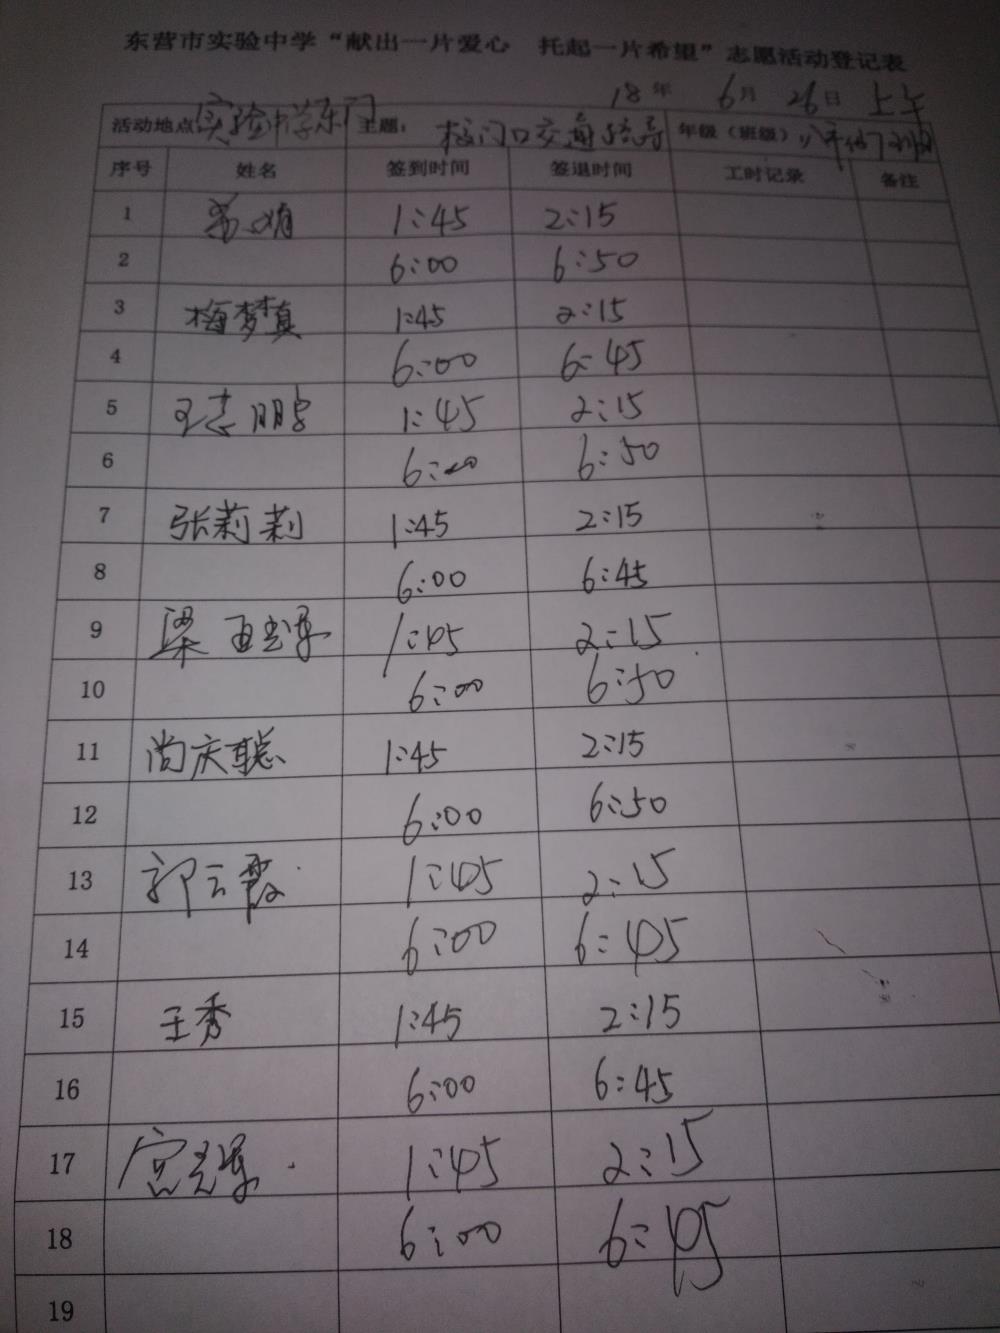 东营市实验中学“献出一片爱心 托起一片希望”志愿活动登记表
18年 6月 26日 上午
活动地点 实验中学东门 主题: 校门口交通疏导 年级（班级）
序号 姓名 签到时间 签退时间 工时记录 备注
1 1:45 2:15
2 6:00 6:50
3 梅梦真 1:45 2:15
4 6:00 6:45
5 王志鹏 1:45 2:15
6 6:00 6:50
7 张莉莉 1:45 2:15
8 6:00 6:45
9 梁 1:45 2:15
10 6:00 6:50
11 尚庆聪 1:45 2:15
12 6:00 6:50
13 郭云霞 1:45 2:15
14 6:00 6:45
15 王秀 1:45 2:15
16 6:00 6:45
17 1:45 2:15
18 6:00 6:45
19